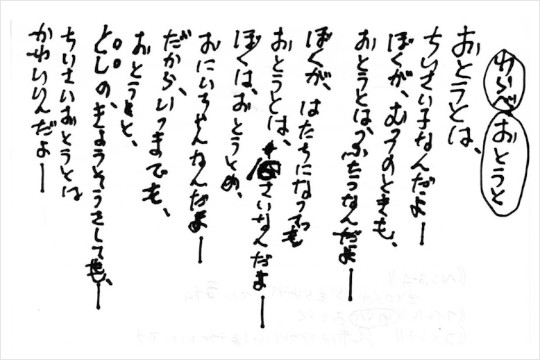 わらべ おとうと
おとうとは、
ちいさい子なんだよー
ぼくが、むつのときも、
おとうとは、ふたつなんだよー
ぼくが、はたちになっても
おとうとは、さいなんだよー
ぼくは、おとうとの、
おにいちゃんなんだよー
だから、いつまでも、
おとうとと、
どしの、きょうそうさしても、ー
ちいさいおとうとは
かわいいんだよー